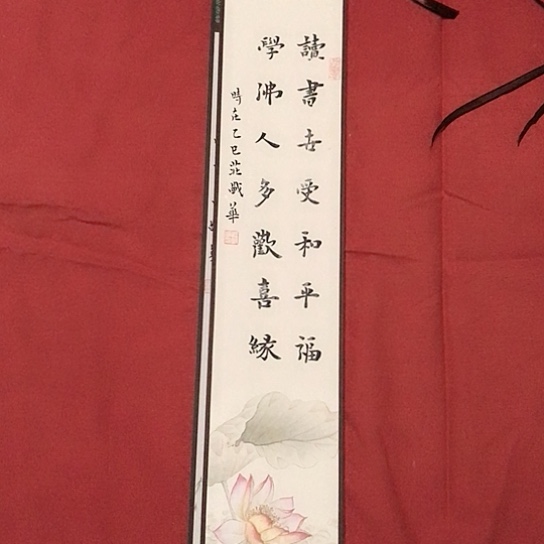 讀書士受和平福
學佛人多歡喜緣
時在乙巳 華